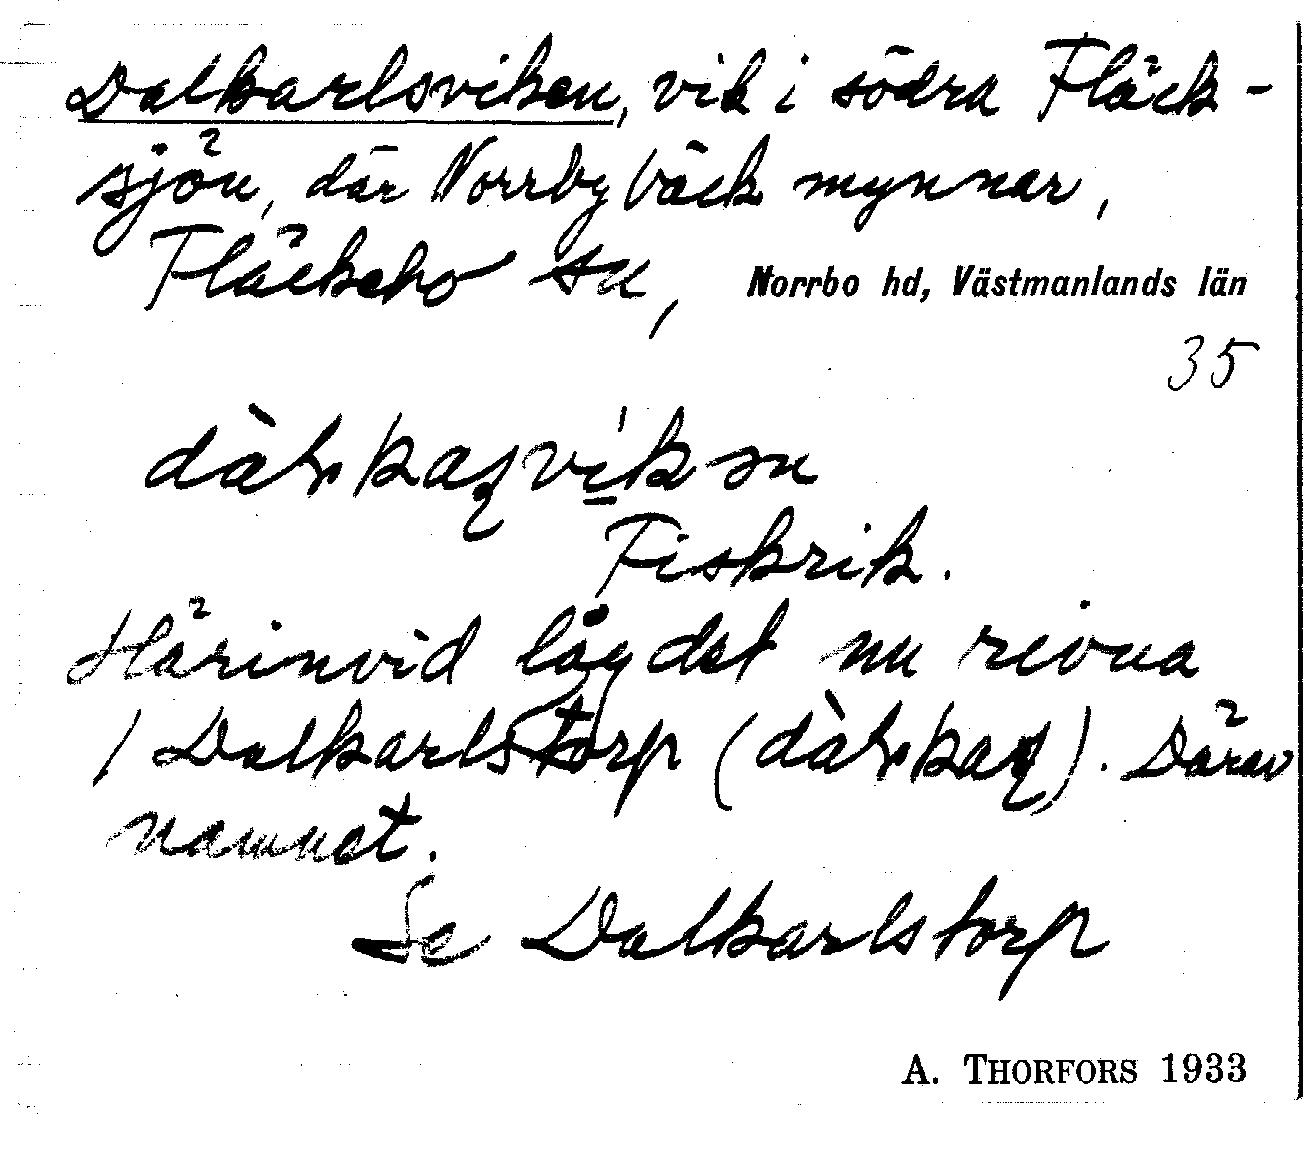 Dalkarlsviken, vik i södra Fläck-
sjön, där Norrby bäck mynnar,
Fläckebo sn, Norrbo hd, Västmanlands län
35
Fiskrik.
Härinvid låg det nu rivna
Dalkarlstorp Därav
namnet.
Se Dalkarlstorp
A. THORFORS 1933